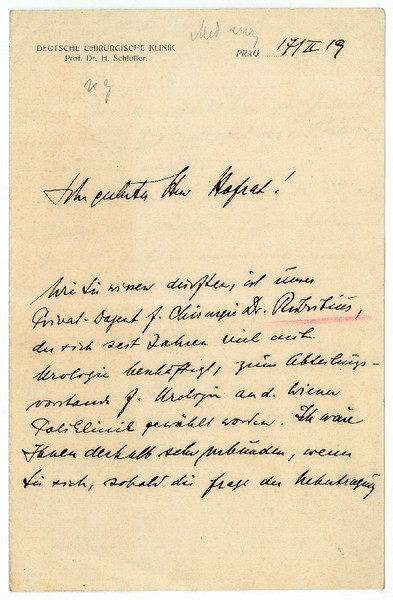 Med
DEUTSCHE CHIRURGISCHE KLINIK
Prof. Dr. H. Schloffer.
PRAG 17/II 19
Sehr geehrter Herr Hofrat!
Wie Sie wissen dürften, ist unser
Privat-Dozent f. Chirurgie Dr. Rubritius,
der sich seit Jahren viel mit
Urologie beschäftigt, zum Abteilungs-
vorstand f. Urologie an d. Wiener
Poliklinik gewählt worden. Ich wäre
Ihnen deshalb sehr verbunden, wenn
Sie sich, sobald die Frage der Uebertragung